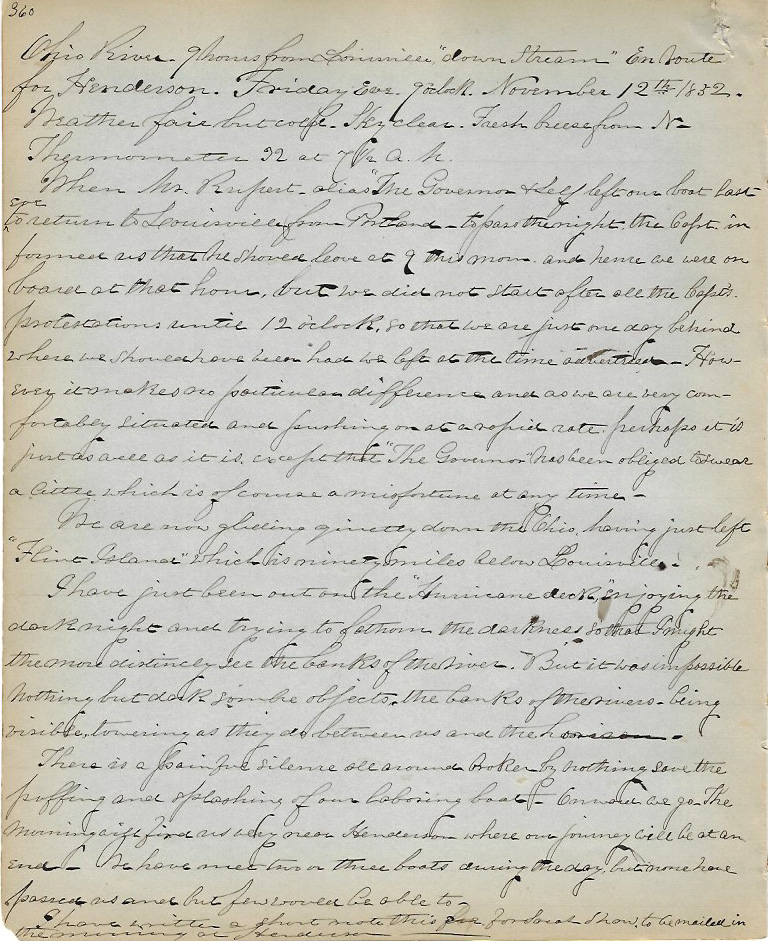 360
Ohio River. 9 hours from Louisville "down Stream" En Route
for Henderson. Friday Eve. 9 o'clock. November 12th 1852.
Weather fair but cold. Sky clear. Fresh breese from N-
Thermometer 32 at 7½ A. M.
When Mr. Rupert- alias "The Governor & Self left our boat last
eve
to return to Louisville from Portland - to pass the night. the Capt. in
formed us that he shoved leave at 9 this morn. and hence we were on
board at that hour, but we did not start after all the Capt's.
protestations until 12 o'clock, so that we are just one day behind
where we should have been had we left at the time advertised - How-
ever it makes no particular difference and as we are very com-
fortably situated and pushing on at a rapid rate perhaps it is
just as well as it is. except that "The Governor" has been obliged to swear
a little, which is of course a misfortune at any time -
We are now gliding quietly down the Ohio, having just left
"Flint Island" which is ninety miles below Louisville. -
I have just been out on the "Hurricane deck," enjoying the
dark night and trying to fathom the darkness so that I might
the more distinctly see the banks of the river. But it was impossible
Nothing but dark sombre objects, the banks of the rivers - being
visible, towering as they do between us and the horison -
There is a painful silence all around broken by nothing save the
puffing and splashing of our laboring boat - Onward we go. The
morning will find us very near Henderson where our journey will be at an
end - We have met two or three boats during the day, but none have
passed us and but few would be able to -
I have written a short note this for Show, to be mailed in
the morning at Henderson